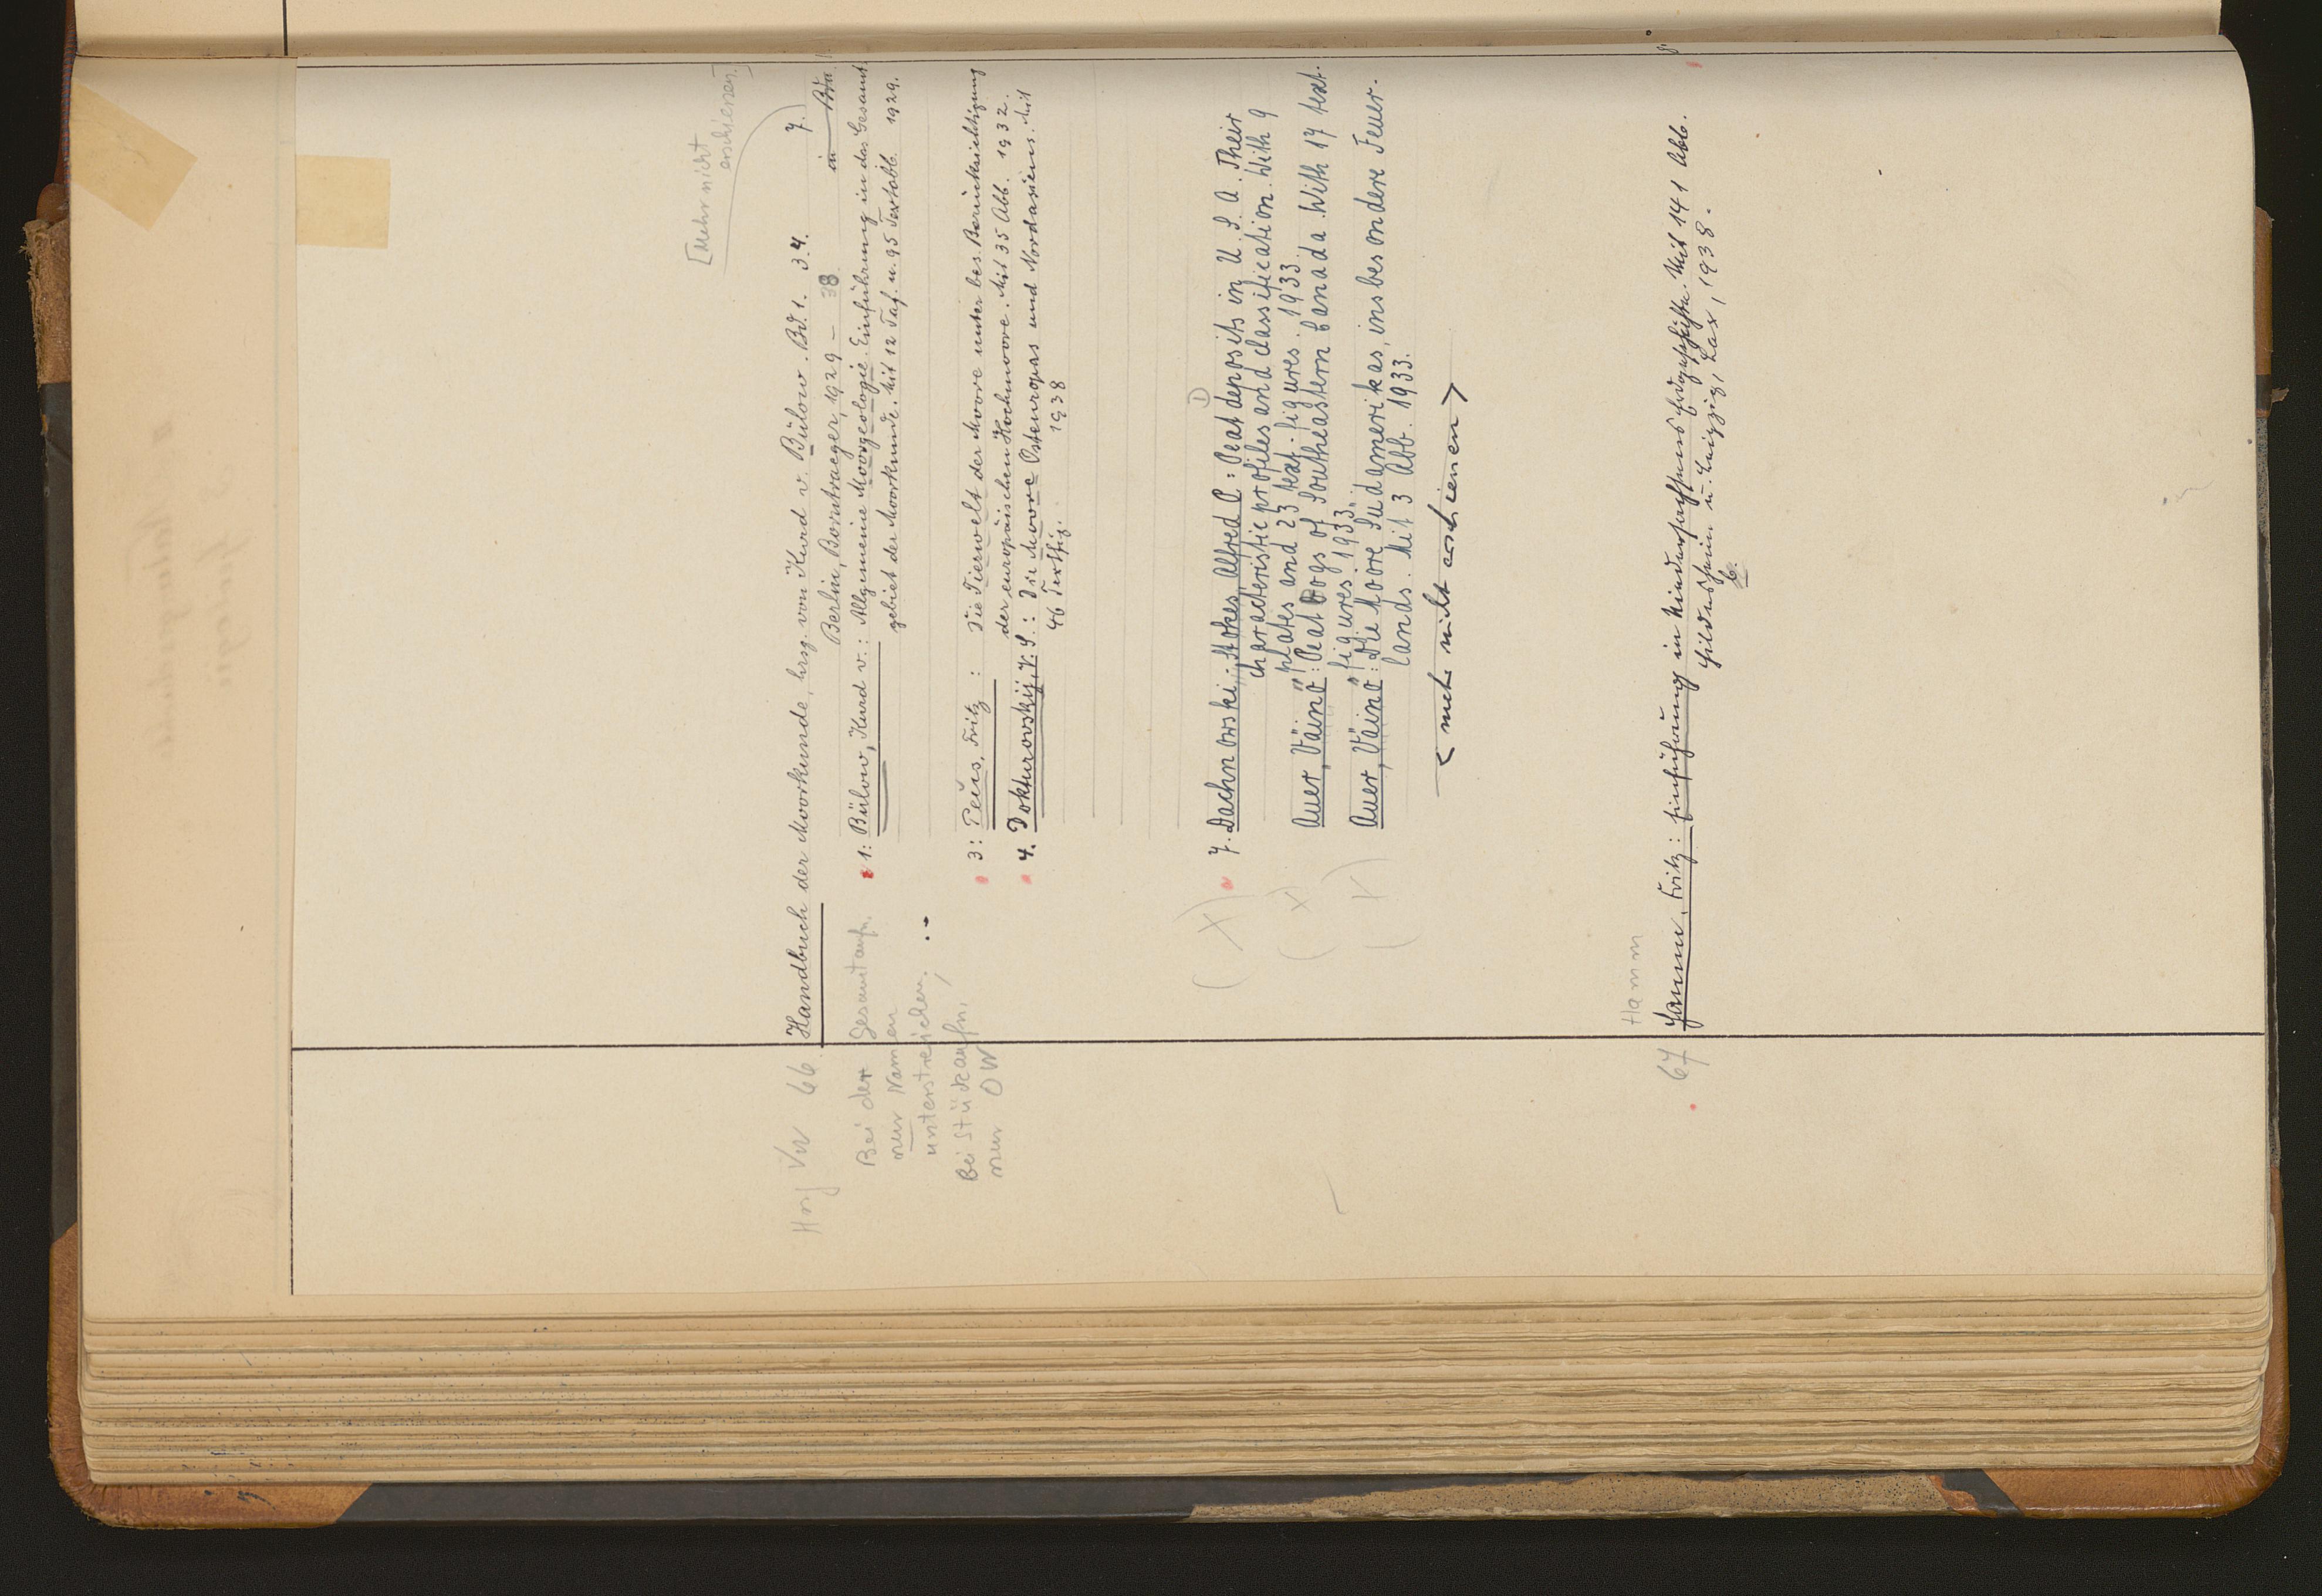 [Mehr nicht
erschienen.]
Hrsg VW 66 Handbuch der Moorkunde, hrsg. von Kurd v. Bülow. Bd. 1. 3.4. 7.
Berlin, Borntraeger, 1929 – 38 in Bdn.
Bei der Gesamtaufn.
nur Namen
unterstreichen,
bei Stückaufn.
nur OW
1: Bülow, Kurd v.: Allgemeine Moorgeologie. Einführung in das Gesamt-
gebiet der Moorkunde. Mit 12 Taf. u. 95 Textabb. 1929.
3: Peus, Fritz: Die Tierwelt der Moore unter bes. Berücksichtigung
der europäischen Hochmoore. Mit 35 Abb. 1932.
4. Dokturovskij, V. S.: Die Moore Osteuropas und Nordasiens. Mit
46 Textfig. 1938
7. Dachnowski-Stokes, Alfred P.: Peat deposits in U. S. A. Their
characteristic profiles and classification. With 9
plates and 23 text-figures. 1933.
(X)
Auer, Väinö: Peat Bogs of Southeastern Canada. With 17 text-
figures. 1933.
(X)
Auer, Väinö: Die Moore Südamerikas, insbesondere Feuer-
lands. Mit 3 Abb. 1933.
< mehr nicht erschienen >
Hamm
67 Hamm, Fritz: Einführung in Niedersachsens Erdgeschichte. Mit 141 Abb. 8°
Hildesheim u. Leipzig, Lax, 1938.